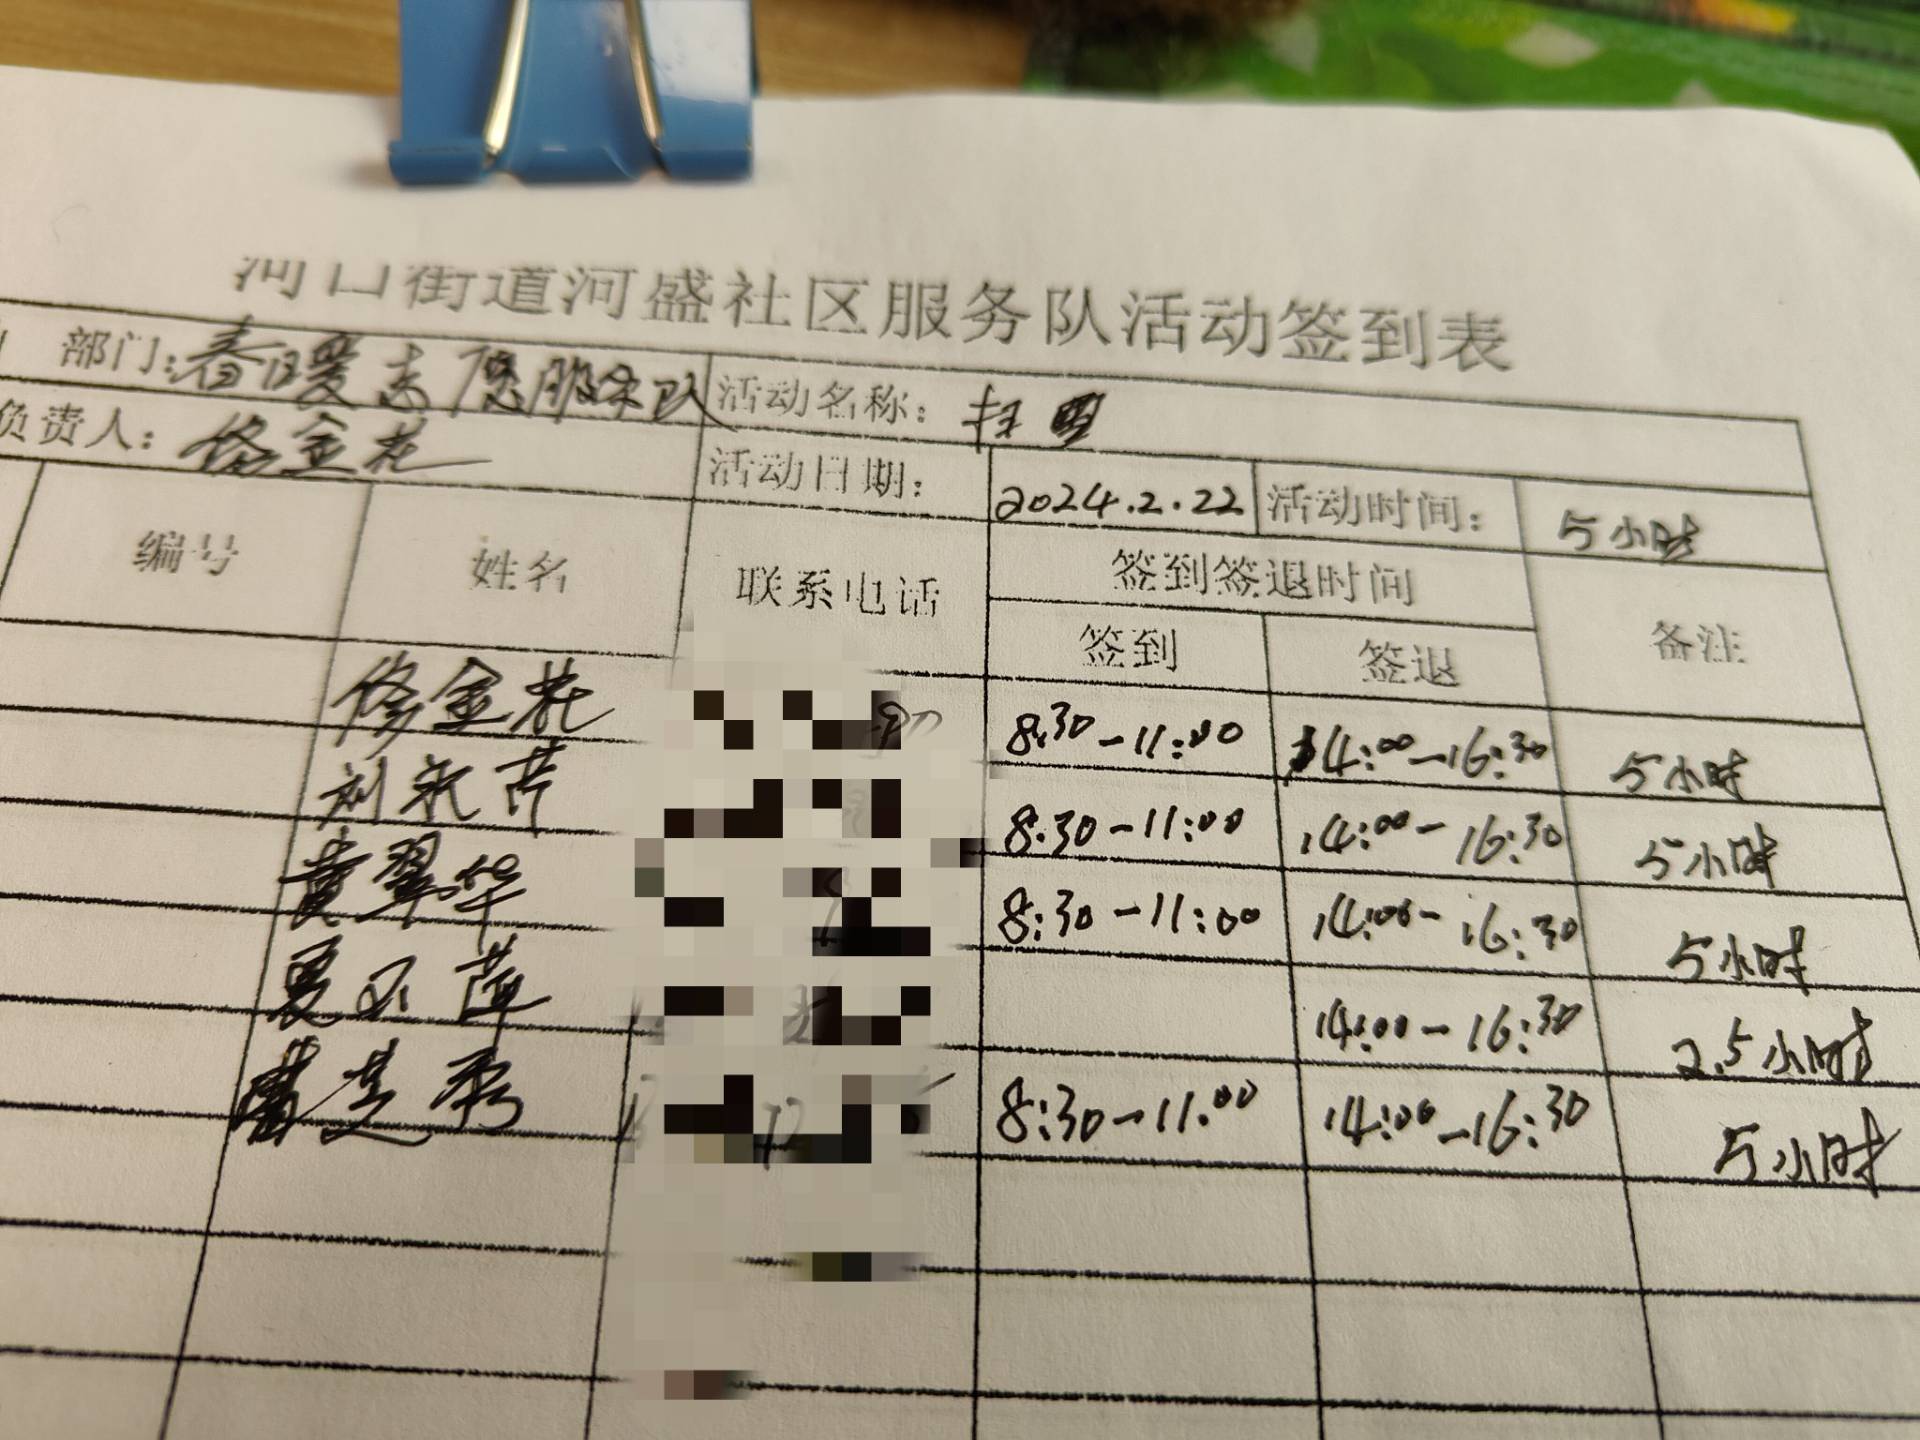 河口街道河盛社区服务队活动签到表
部门:春暖志愿服务队 活动名称: 扫盟
负责人: 佟金花 活动日期: 2024.2.22 活动时间: 5小时
编号 姓名 联系电话 签到签退时间 备注
签到 签退
佟金花 8:30-11:00 14:00-16:30 5小时
8:30-11:00 14:00-16:30 5小时
黄翠华 8:30-11:00 14:00-16:30 5小时
14:00-16:30 2.5小时
8:30-11:00 14:00-16:30 5小时